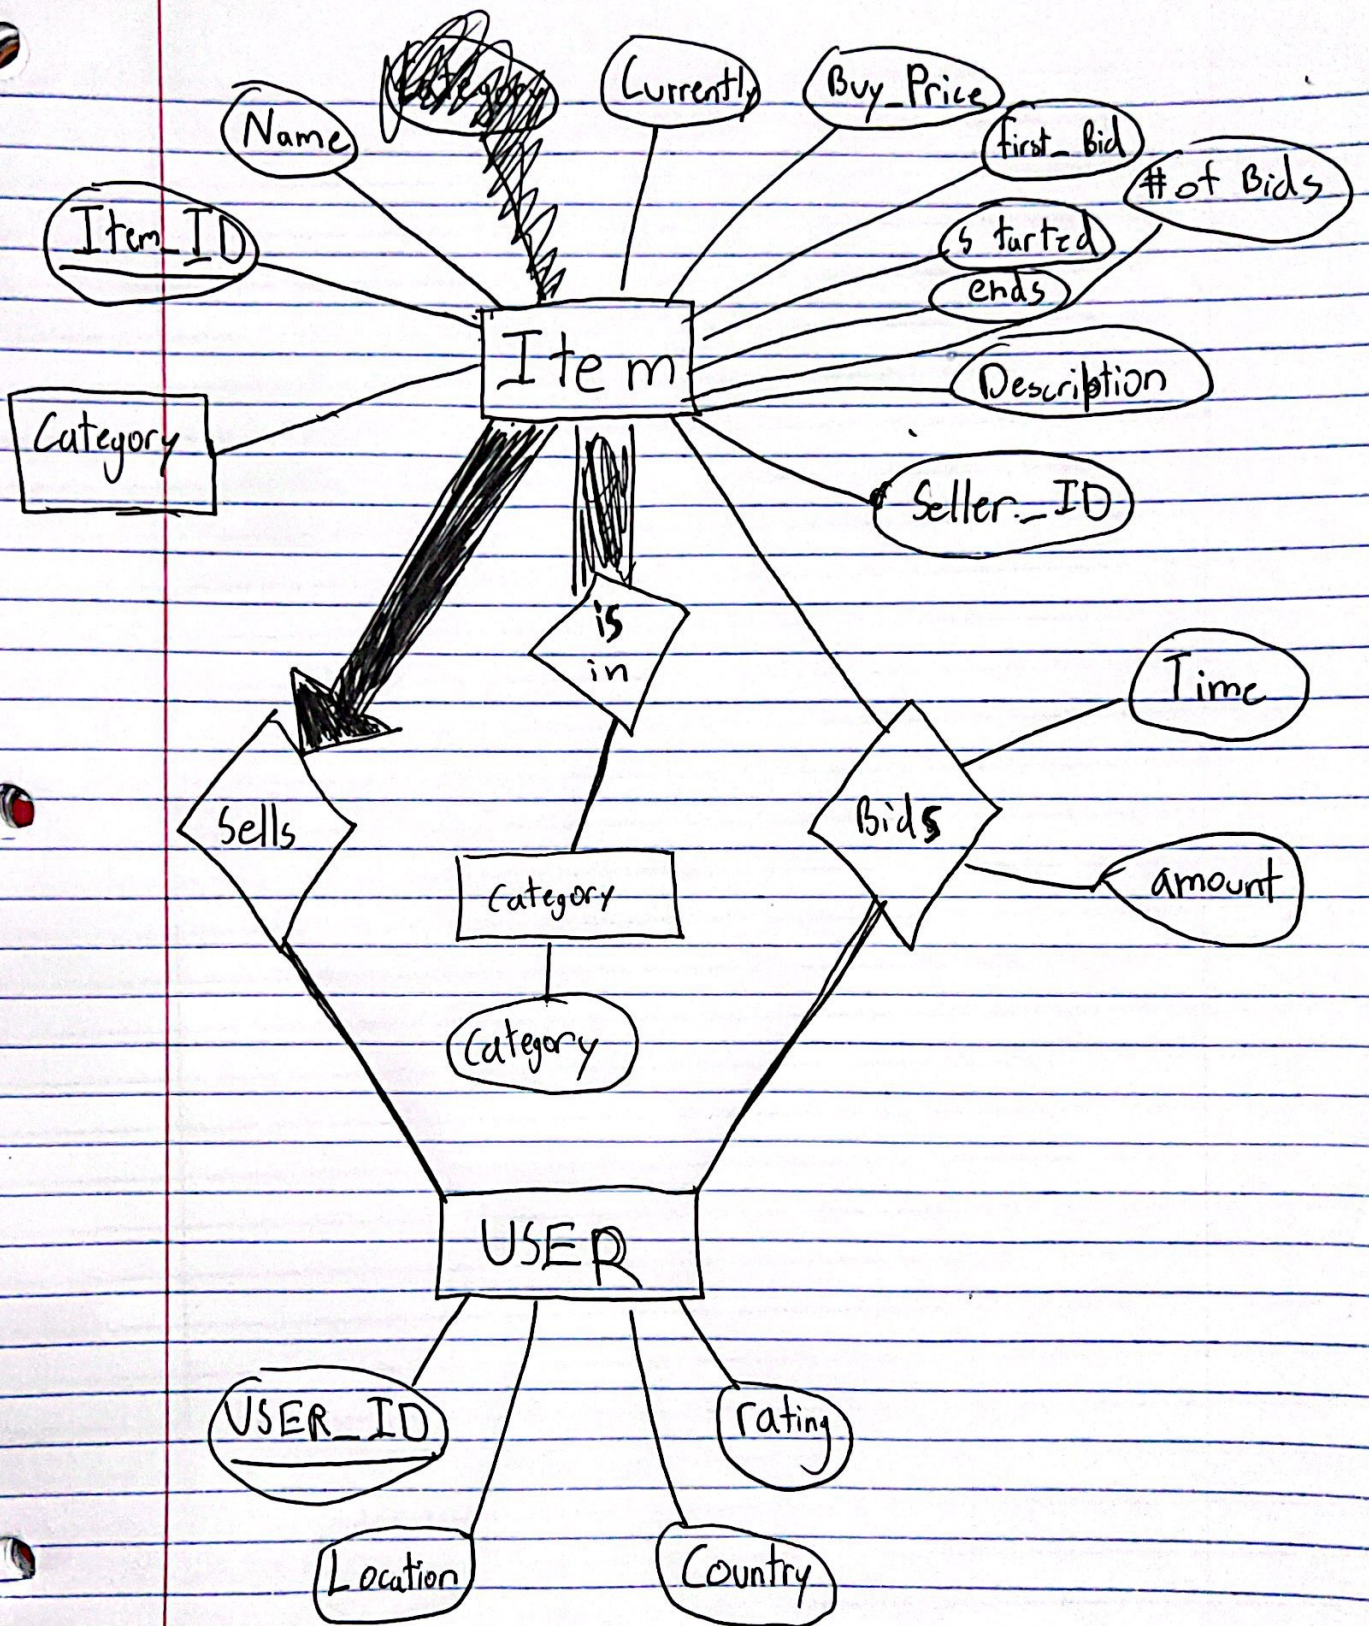 Category
Currently
Buy_Price
Name
first_Bid
# of Bids
Item_ID
started
ends
Item
Description
Category
Seller_ID
is
in
Time
Sells
Bids
Category
amount
Category
USER
USER_ID
rating
Location
Country